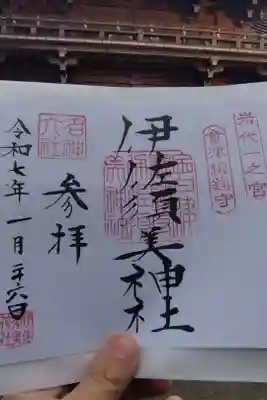 岩代一之宮
會津總鎮守
伊佐須美神社
名神大社
参拝
令和七年一月二十六日